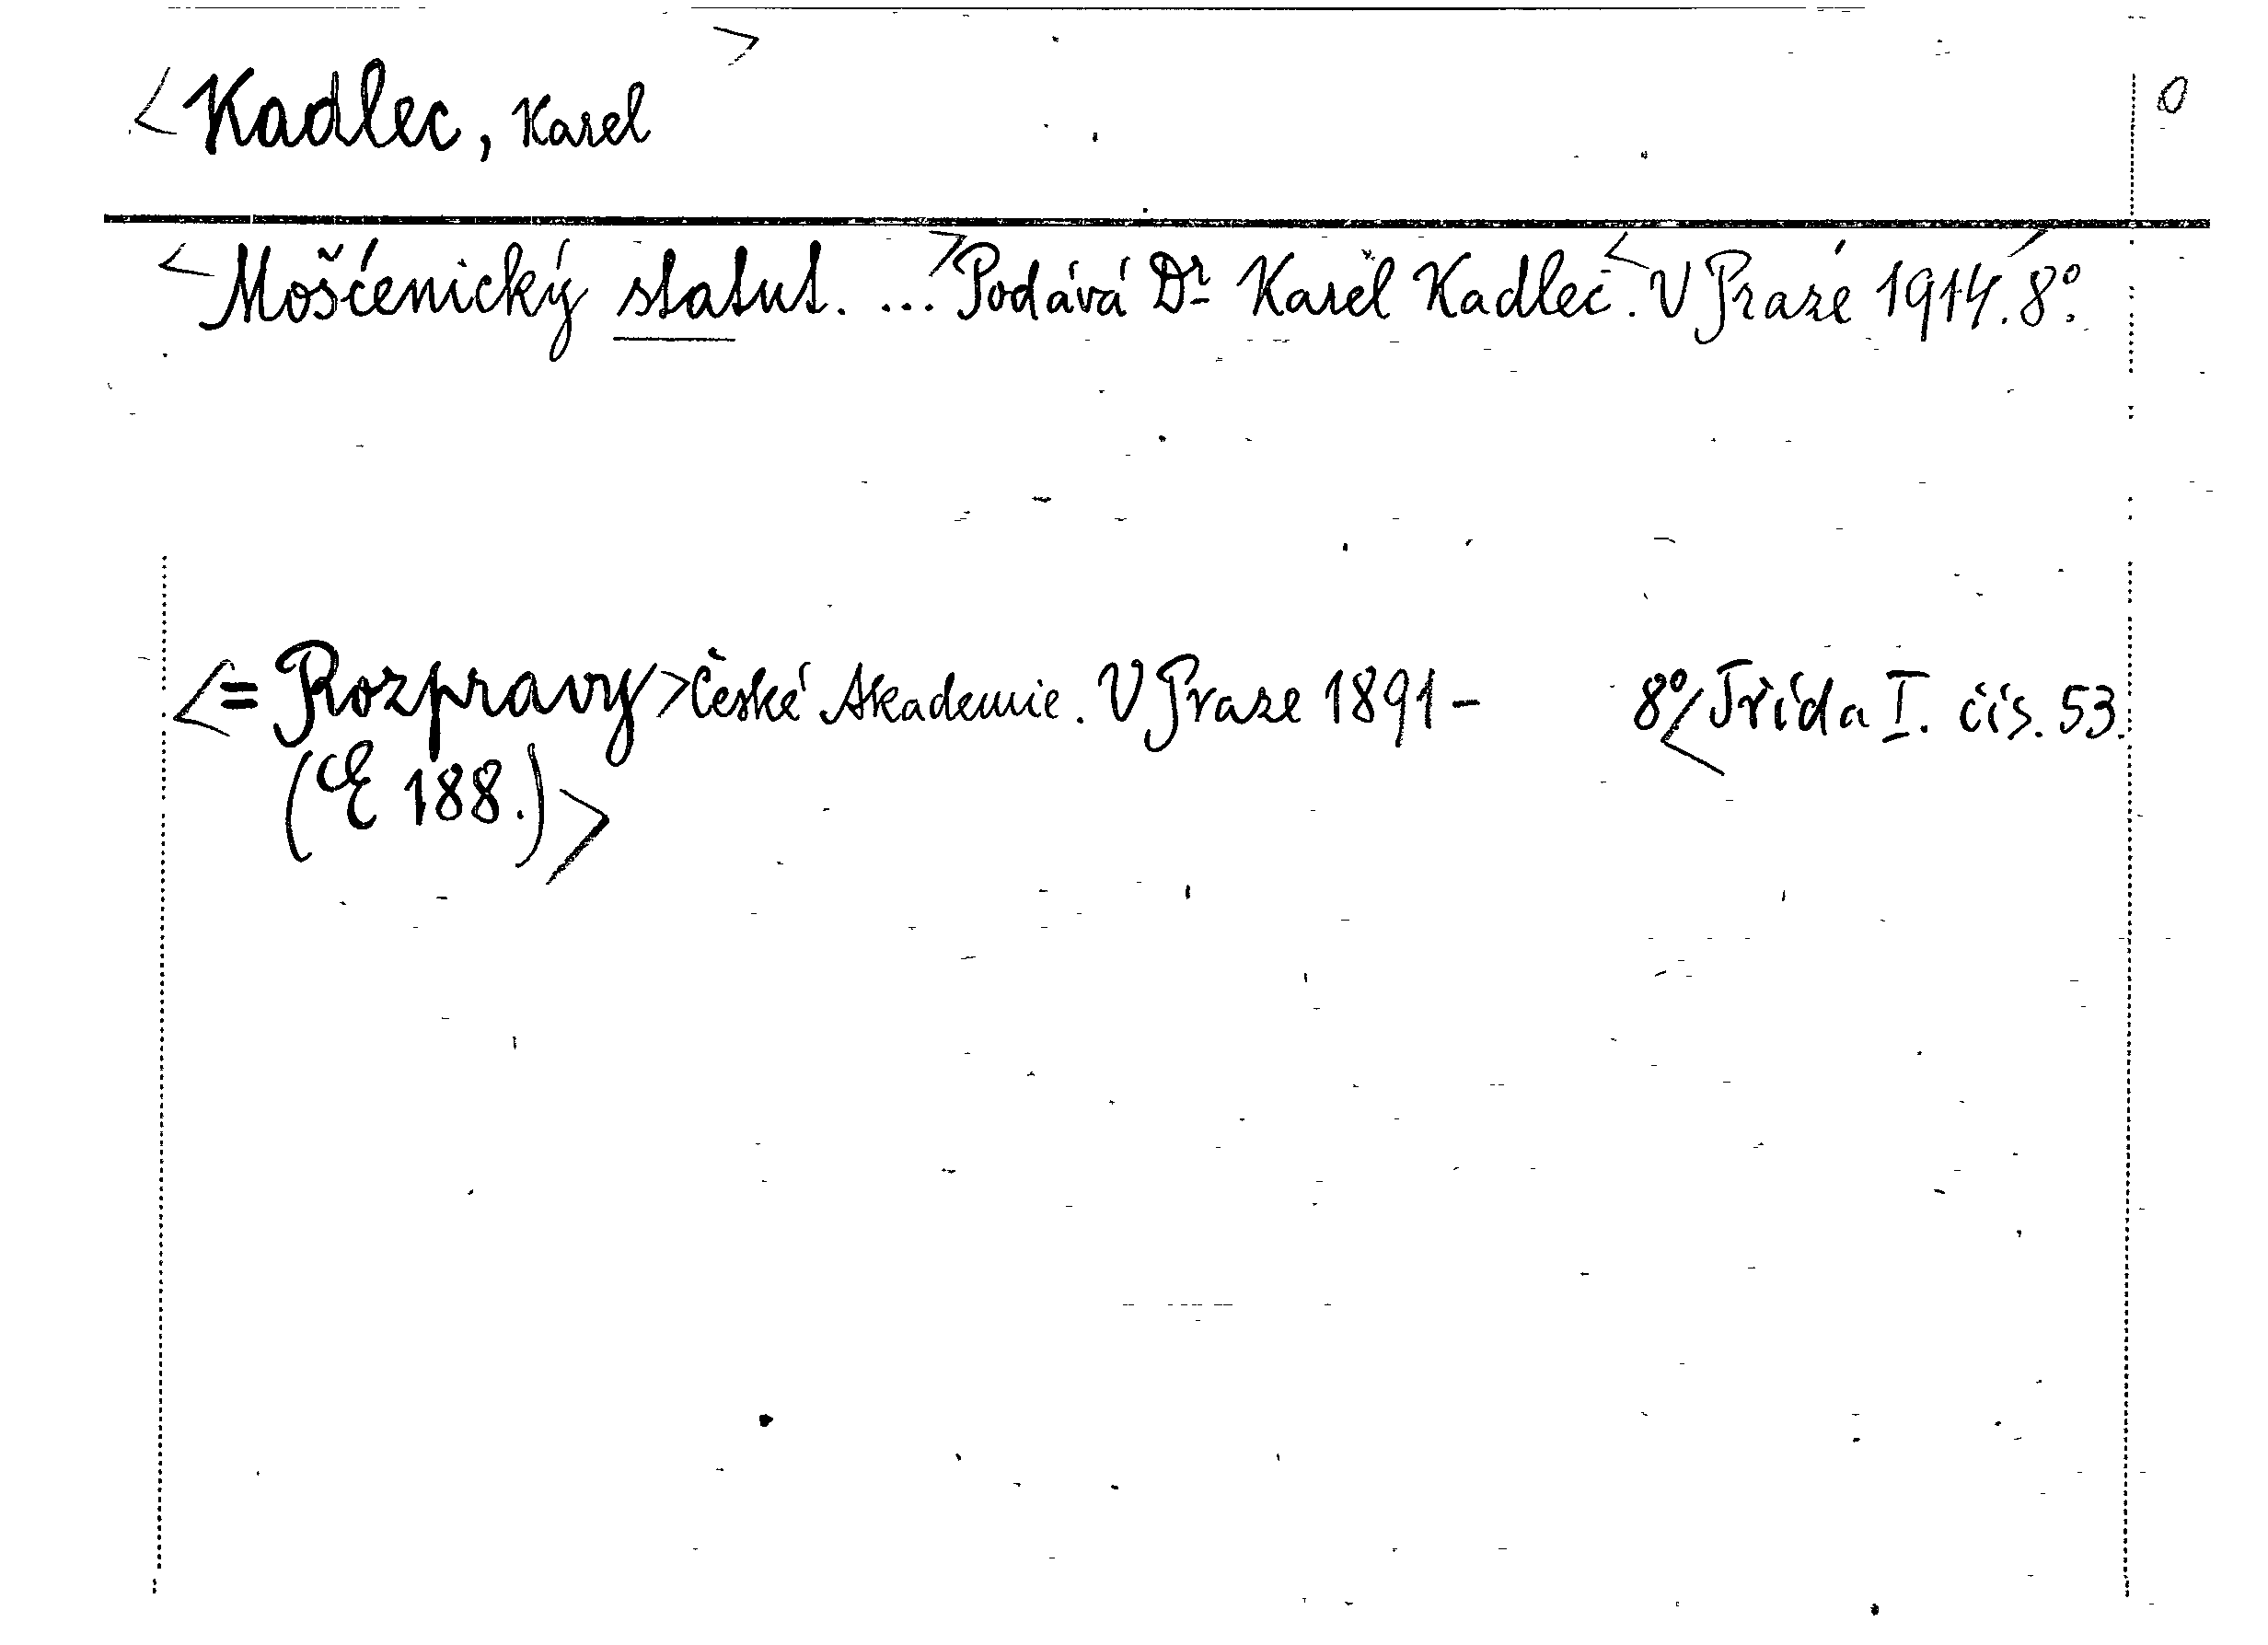 <Kadlec, Karel> 0
<Mošćenický statut. ...> Podává Dr Karel Kadlec. <V Praze 1914.> 8º.
<= Rozpravy> České Akademie. V Praze 1891 - 8º/ <Třída I. čís. 53.
(E 188.)>